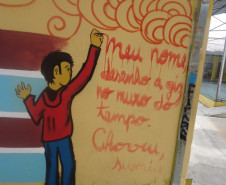 Meu nome,
desenho a giz
no muro do
tempo.
Choveu,
sumi!